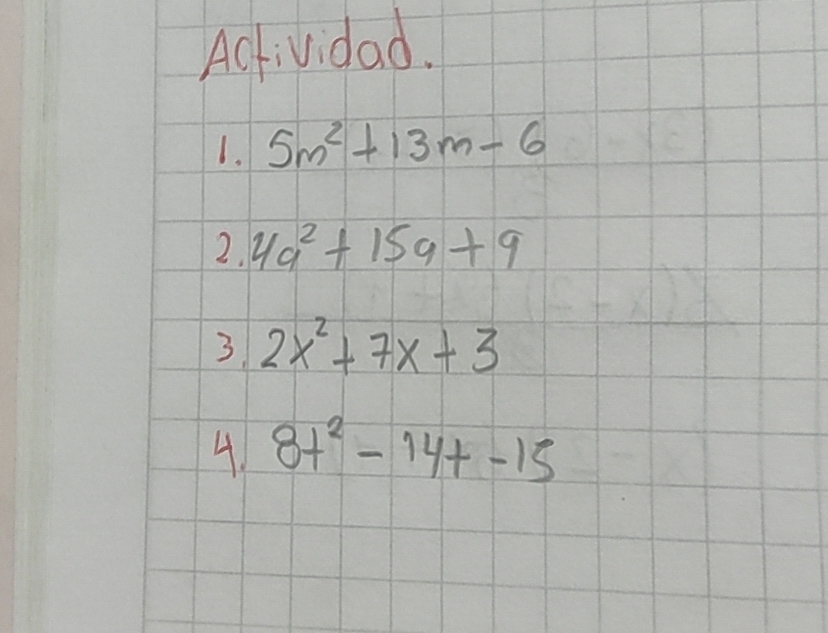 Actividad.
1. 5m² + 13m - 6
2. 4a² + 15a + 9
3. 2x² + 7x + 3
4. 8t² - 14t - 15